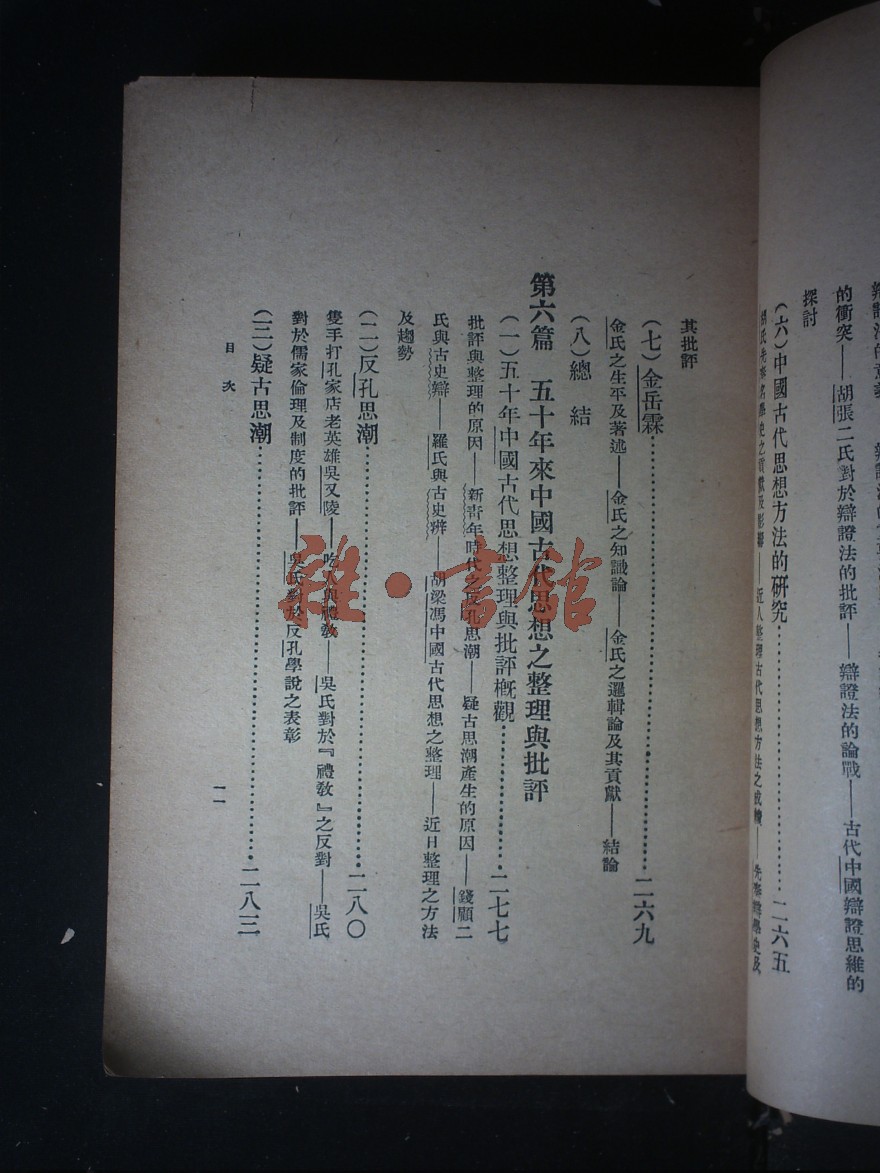 的衝突——胡張二氏對於辯證法的批評——辯證法的論戰——古代中國辯證思維的
探討
(六)中國古代思想方法的研究……二六五
胡氏先秦名學史之貢獻及影響——近人整理古代思想方法之成績
其批評
(七)金岳霖……二六九
金氏之生平及著述——金氏之知識論——金氏之邏輯論及其貢獻——結論
(八)總結
第六篇 五十年來中國古代思想之整理與批評
(一)五十年中國古代思想整理與批評概觀……二七七
批評與整理的原因——新青年時代之反孔思潮——疑古思潮產生的原因——錢顧二
氏與古史辯——羅氏與古史辨——胡梁馮中國古代思想之整理——近日整理之方法
及趨勢
(二)反孔思潮……二八〇
隻手打孔家店老英雄吳又陵——吃人與禮教——吳氏對於『禮教』之反對——吳氏
對於儒家倫理及制度的批評——吳氏對於反孔學說之表彰
(三)疑古思潮……二八三
目次
一一
雜·書館